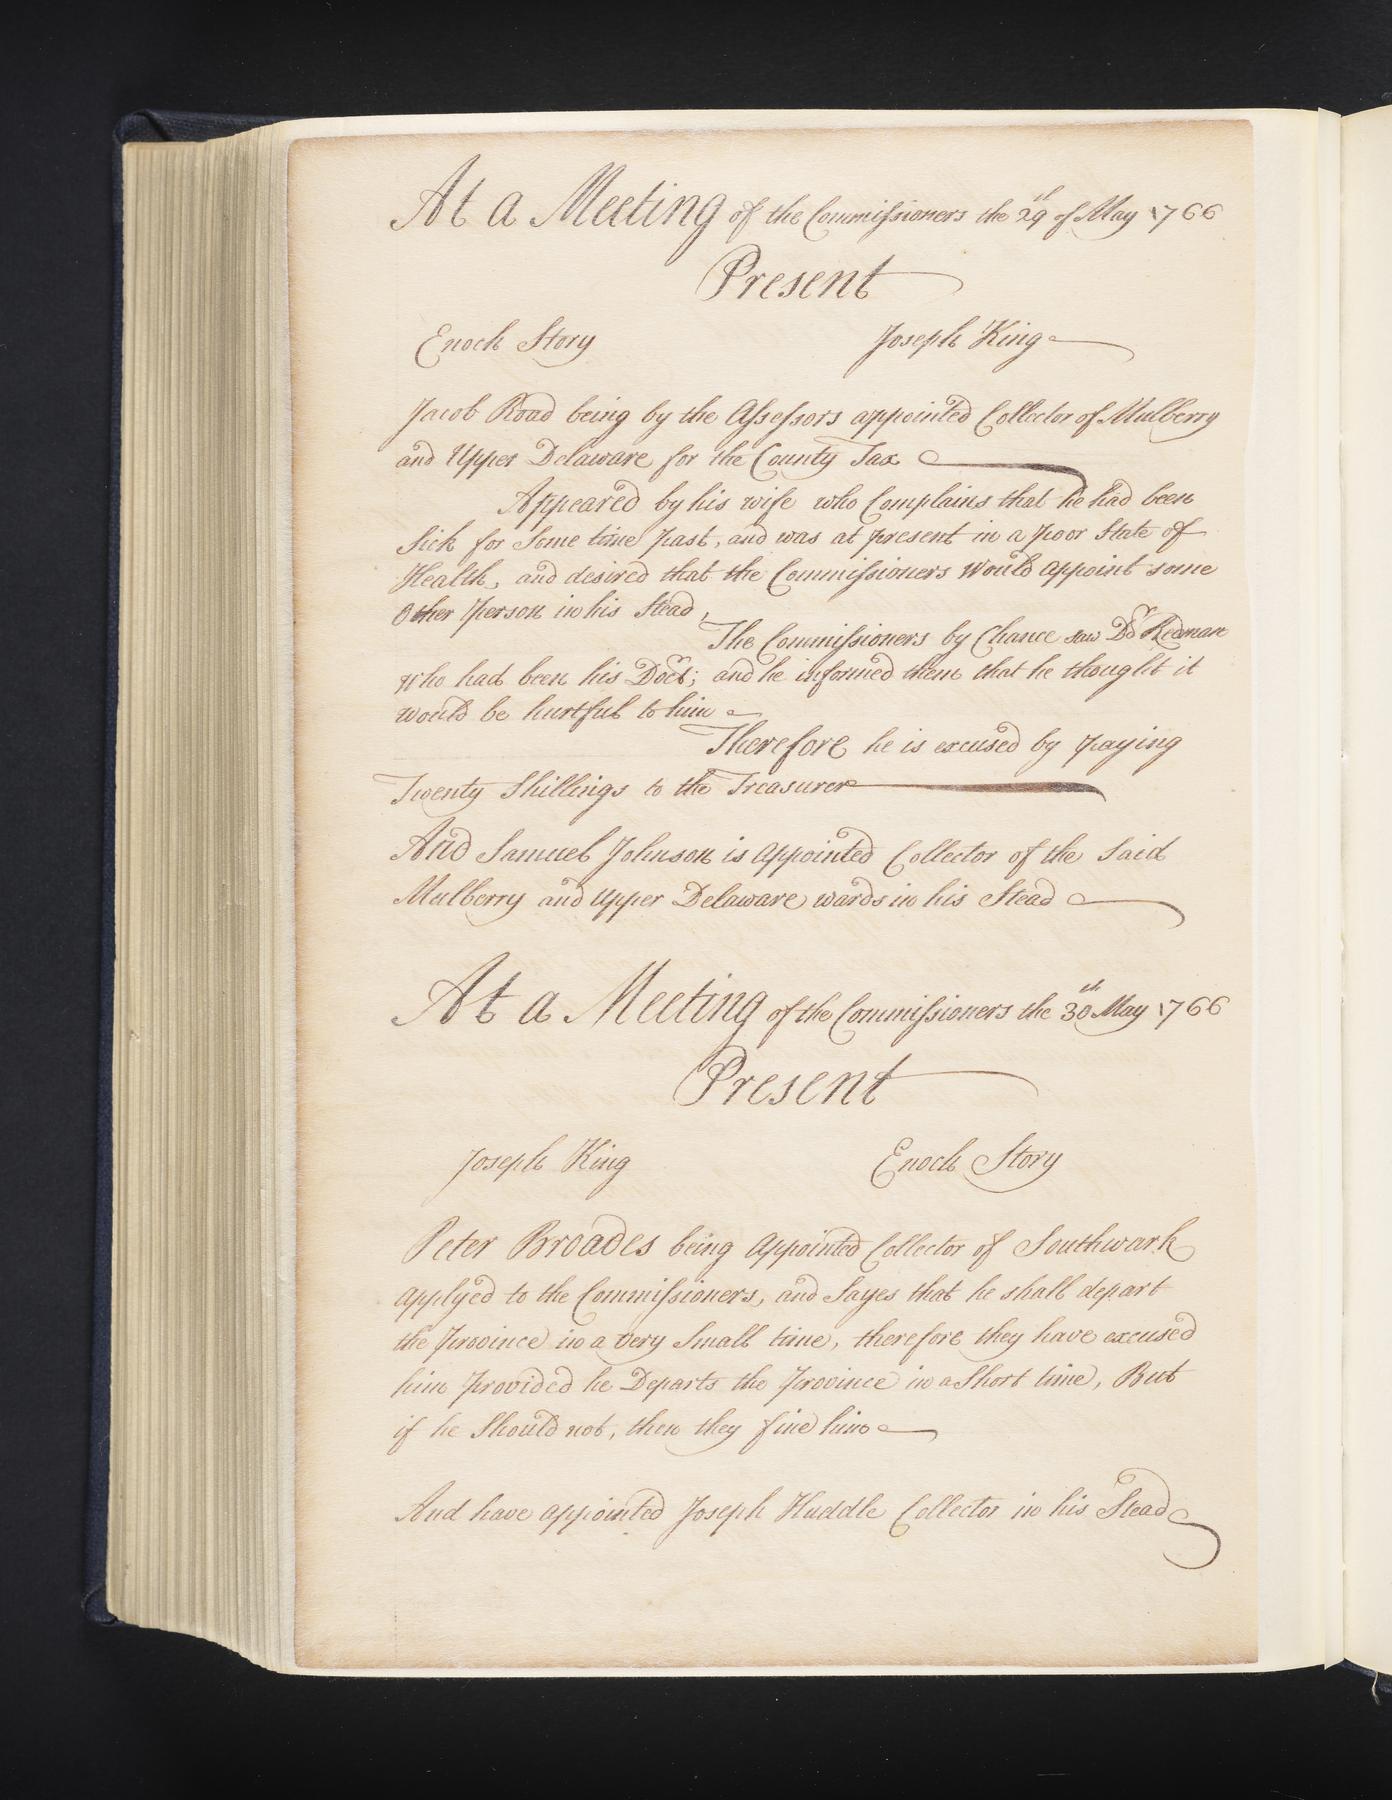 At a Meeting of the Commissioners the 29th of May 1766
Present
Enoch Story Joseph King
Jacob Road being by the Assessors appointed Collector of Mulberry
and Upper Delaware for the County Tax
Appeared by his wife who Complains that he had been
Sick for Some time past, and was at present in a poor State of
Health, and desired that the Commissioners Would appoint some
Other person in his Stead,
The Commissioners by Chance saw Dr Redman
who had been his Doctr; and he informed them that he thought it
would be hurtful to him
Therefore he is excused by paying
Twenty Shillings to the Treasurer
And Samuel Johnson is appointed Collector of the Said
Mulberry and Upper Delaware wards in his Stead
At a Meeting of the Commissioners the 30th May 1766
Present
Joseph King Enoch Story
Peter Broades being Appointed Collector of Southwark
applyed to the Commissioners, and Sayes that he shall depart
the province in a very Small time, therefore they have excused
him provided he Departs the province in a Short time, But
if he Should not, then they fine him
And have appointed Joseph Huddle Collector in his Stead